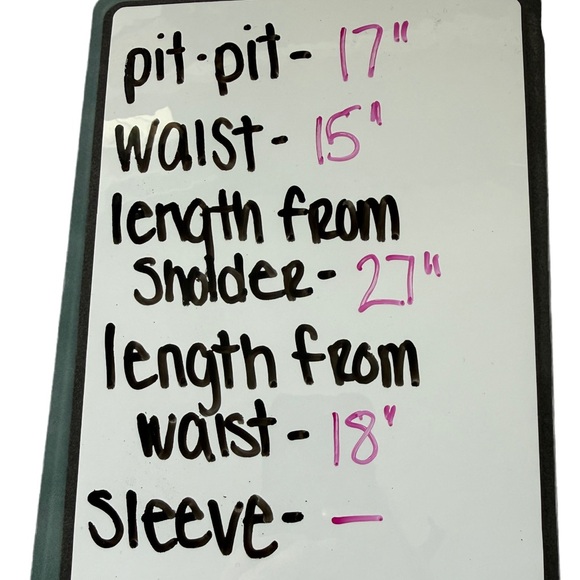 pit·pit- 17"
waist- 15"
length from
sholder- 27"
length from
waist- 18"
sleeve- —